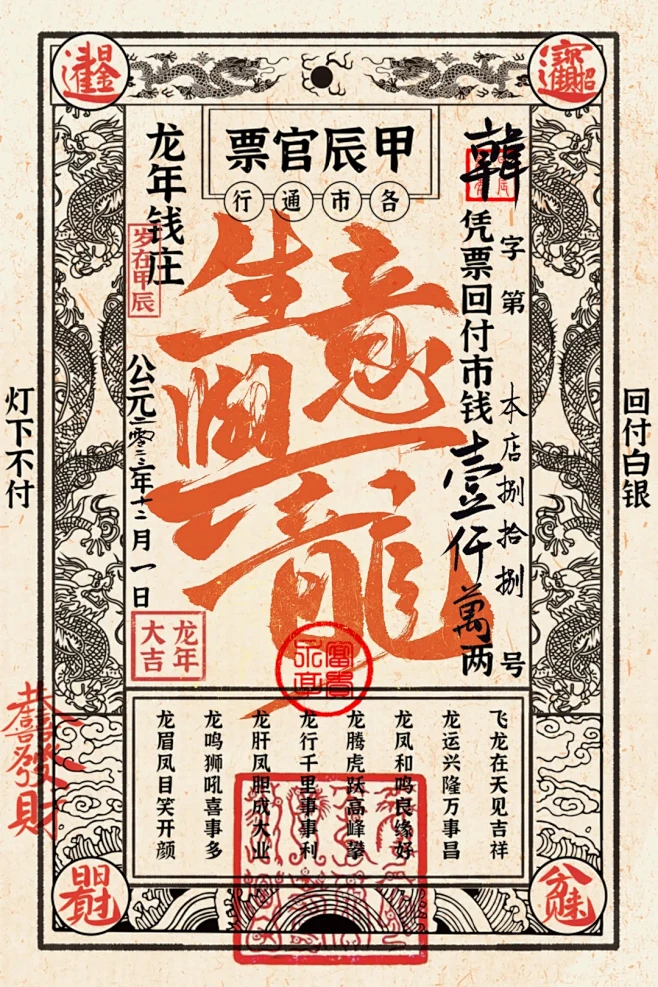 甲辰官票
各市通行
韓字第本店捌拾捌号
凭票回付市钱壹仟萬两
生意興龍
龙年钱庄
岁在甲辰
公元二零二三年十二月一日
龙年大吉
富貴永享
回付白银
灯下不付
恭喜發財
飞龙在天见吉祥
龙运兴隆万事昌
龙凤和鸣良缘好
龙腾虎跃高峰攀
龙行千里事事利
龙肝凤胆成大业
龙鸣狮吼喜事多
龙眉凤目笑开颜